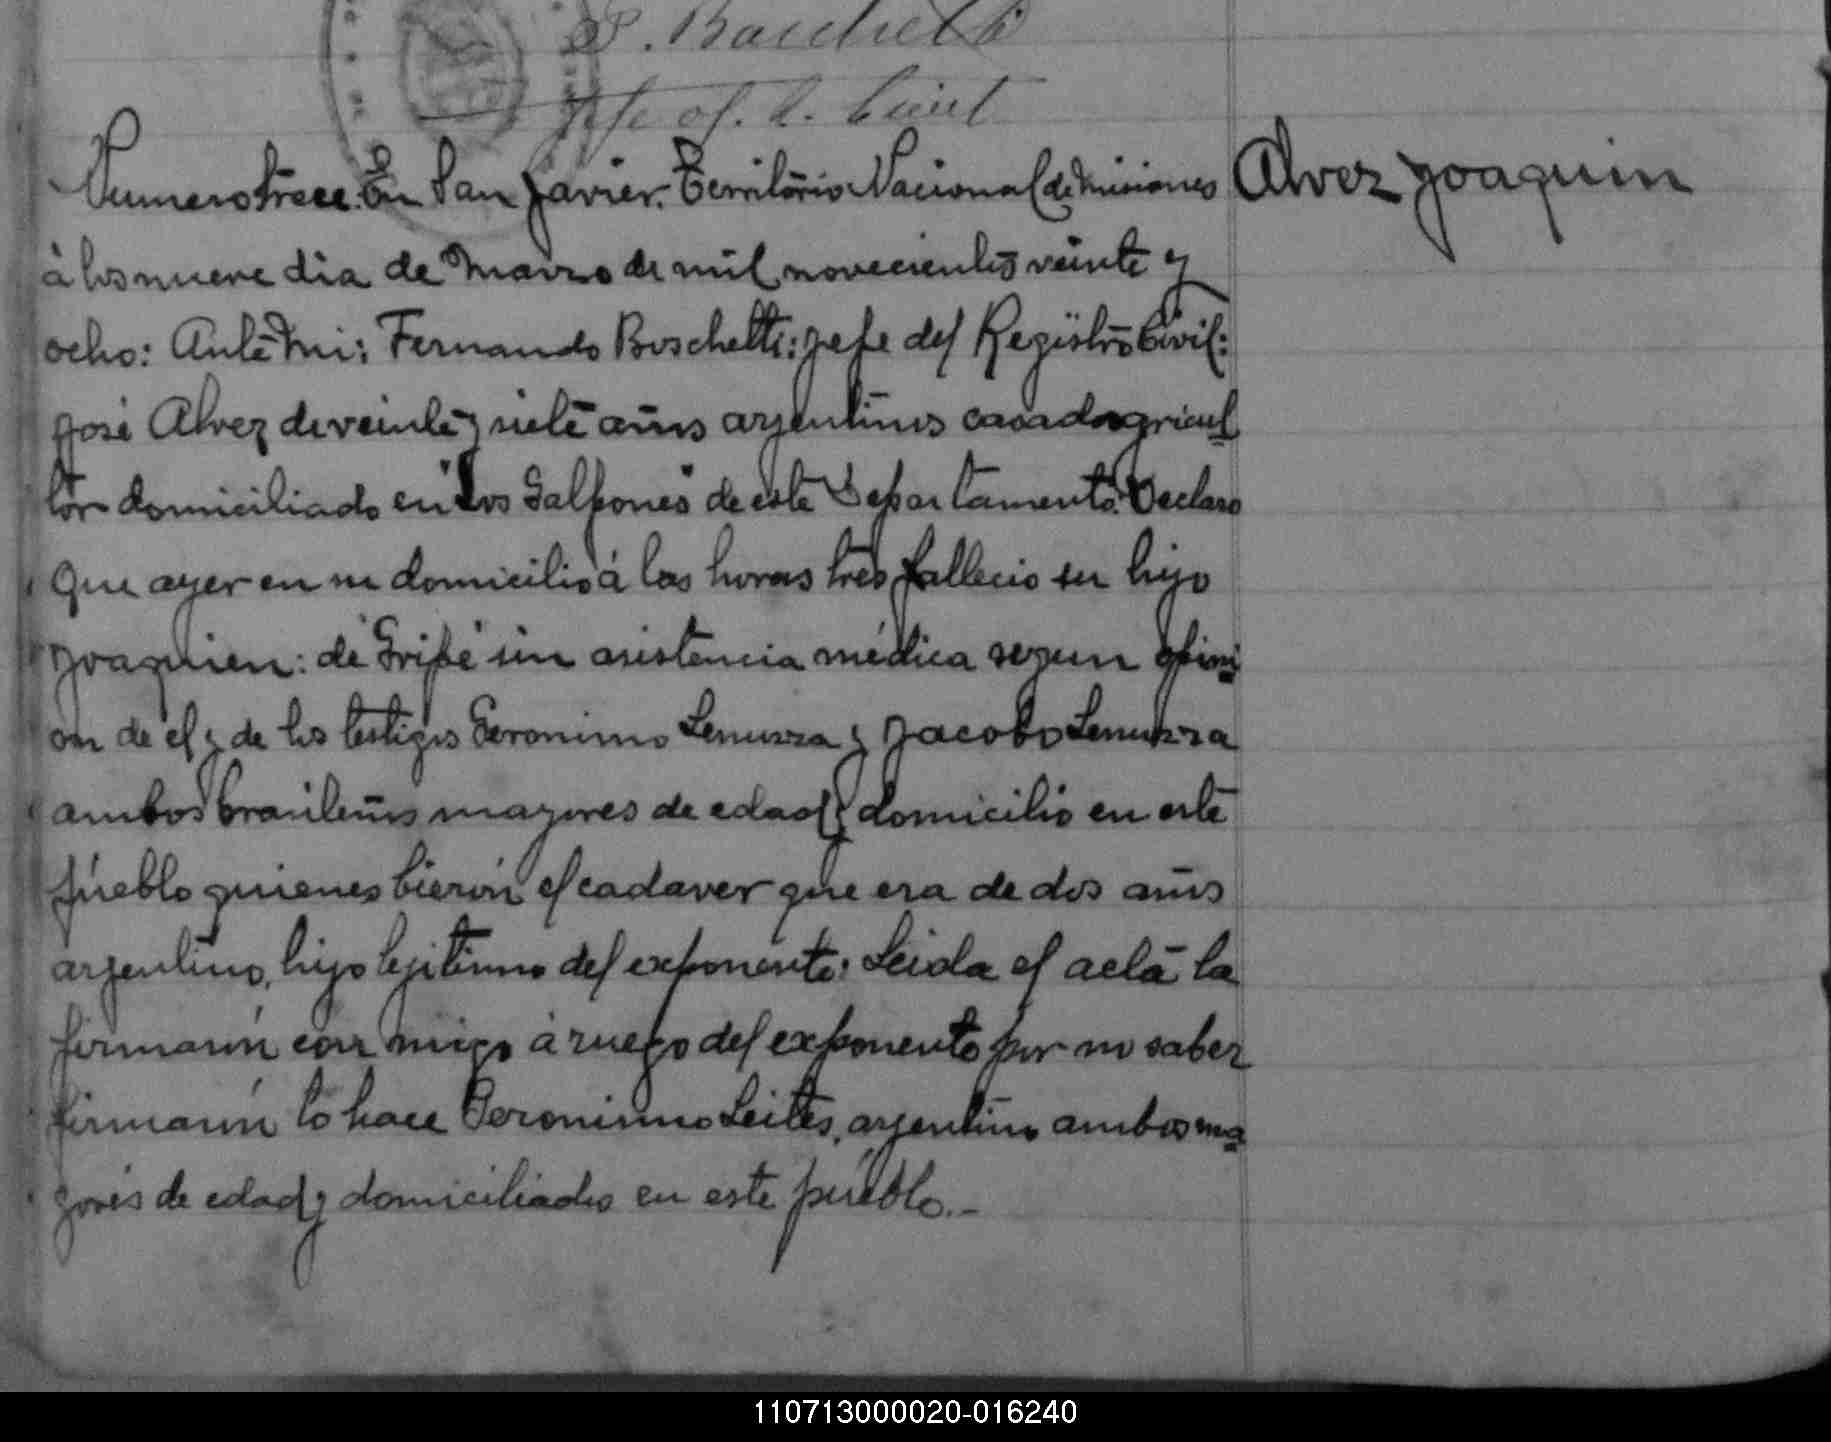 Jefe of. R. Civil
Numero trece. En San Javier. Territorio Nacional de Misiones
Alvez Joaquin
à los nueve dia de Marzo de mil novecientos veinte y
ocho: Ante Mi: Fernando Boschetti: Jefe del Registro Civil:
José Alvez de veinte y siete años argentinos casado agricul
tor domiciliado en "Los Galpones" de este Departamento. Declaro
Que ayer en su domicilio á las horas tres fallecio su hijo
Joaquien: de "Gripe" sin asistencia médica segun opini
on de el y de los testigos Geronimo Lemurza y Jacobo Lemurza
ambos brasileños mayores de edad y domicilio en este
pueblo quienes bieron el cadaver que era de dos años
argentino, hijo lejitimo del exponente: Leida el acta la
firmarón con migo à ruego del exponento por no saber
firmarón lo hace Geronimo Leites, argentino ambos ma
yores de edad y domiciliados en este pueblo.-
110713000020-016240